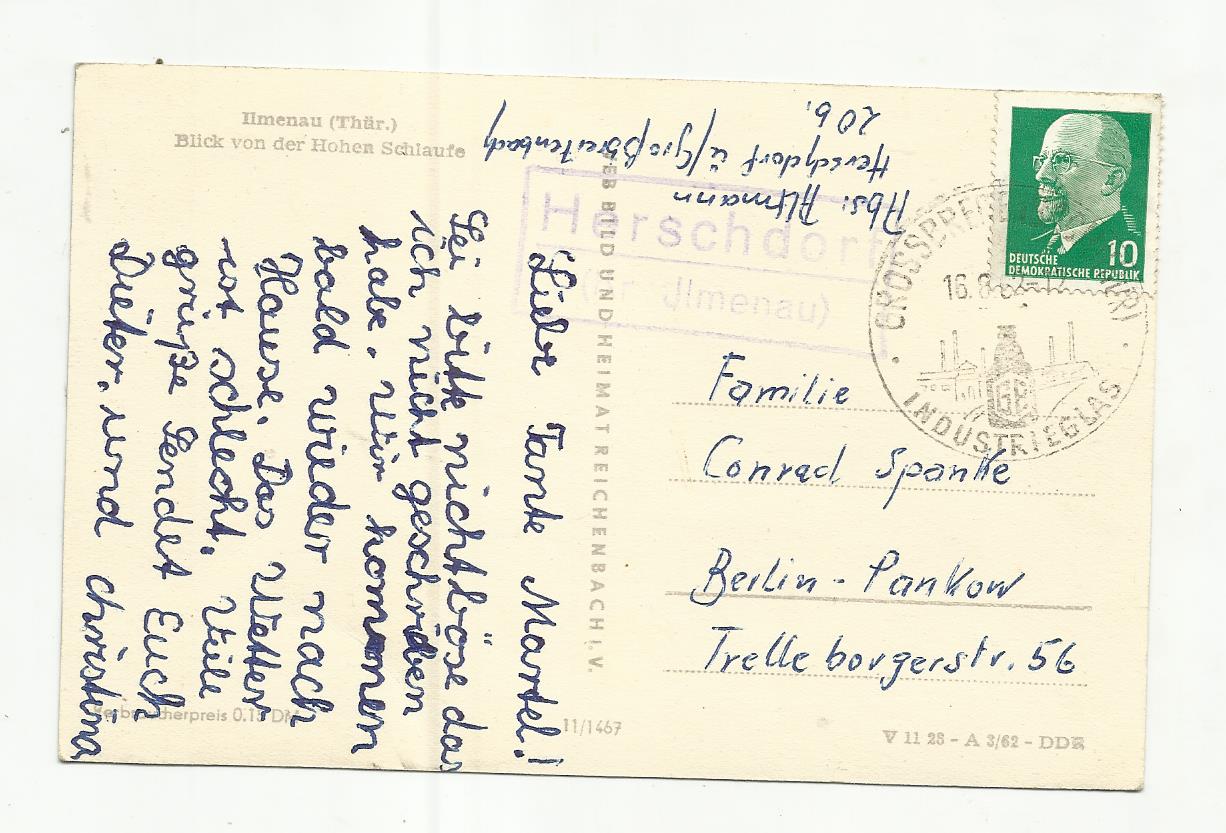 Ilmenau (Thür.)
Blick von der Hohen Schlaufe
Abs: Altmann
Herschdorf ü/Großbreitenbach
20 b.
Herschdorf
Ilmenau)
Liebe Tante Martel!
Sei bitte nicht böse das
ich nicht geschriben
habe. Wir kommen
bald wieder nach
Hause. Das Wetter
ist schlecht. Viele
grüße Sendet Euch
Dieter. und Christina
VEB BILD UND HEIMAT REICHENBACH I. V.
DEUTSCHE
DEMOKRATISCHE REPUBLIK
10
16.8.
INDUSTRIEGLAS
Familie
Conrad Spanke
Berlin - Pankow
Trelleborgerstr. 56
Verbraucherpreis 0.15 DM
11/1467
V 11 28 - A 3/62 - DDR